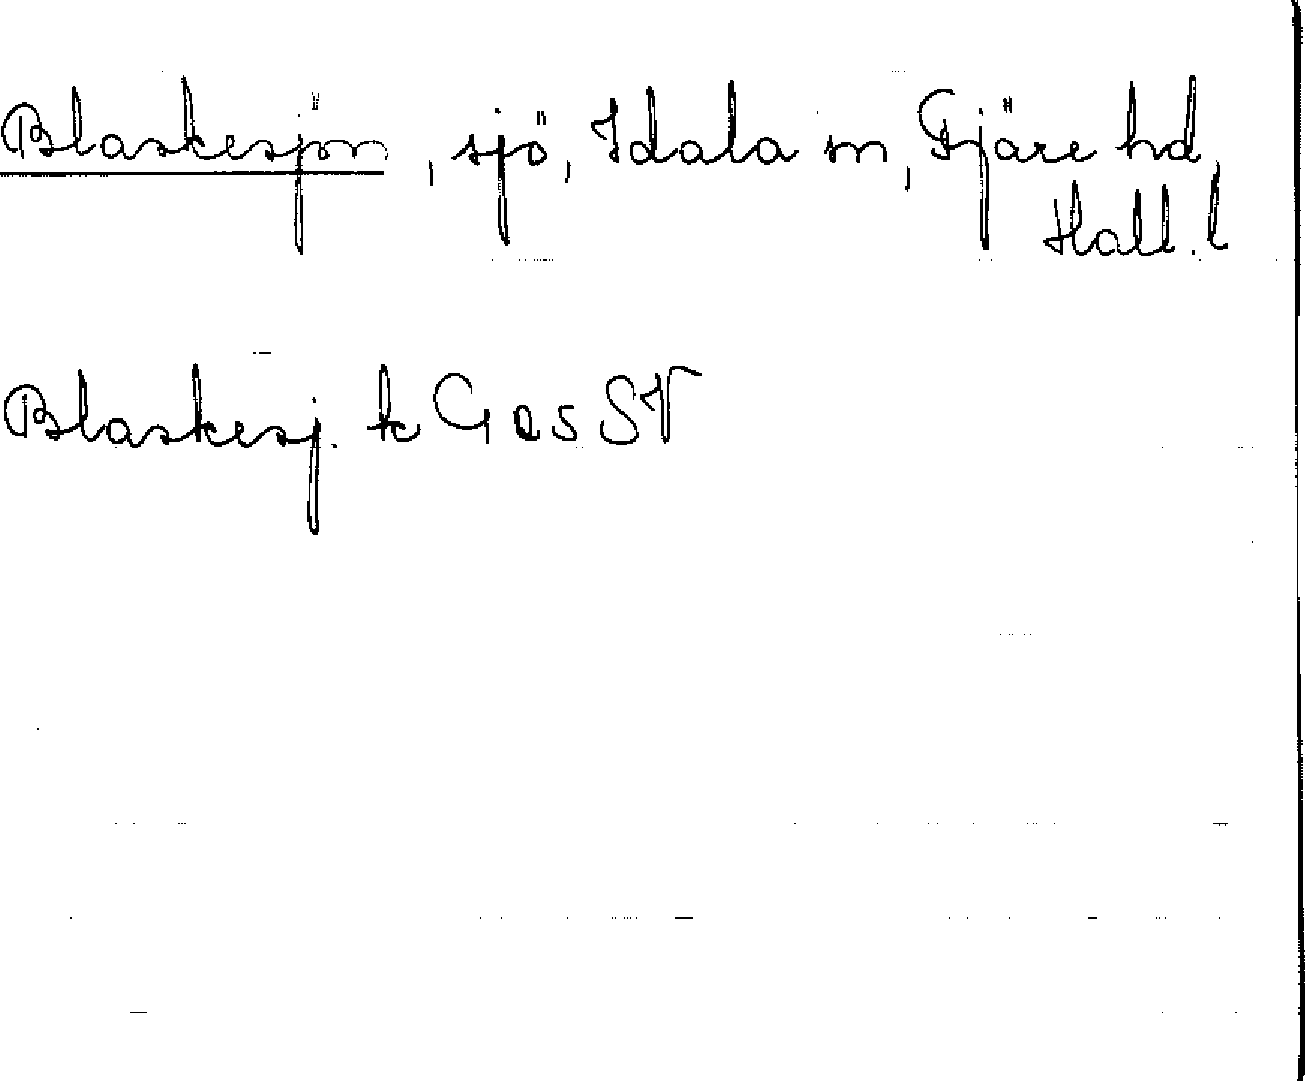 Blaskesjön, sjö, Idala sn, Fjäre hd,
Hall. l
Blaskesj. k GÖS SV